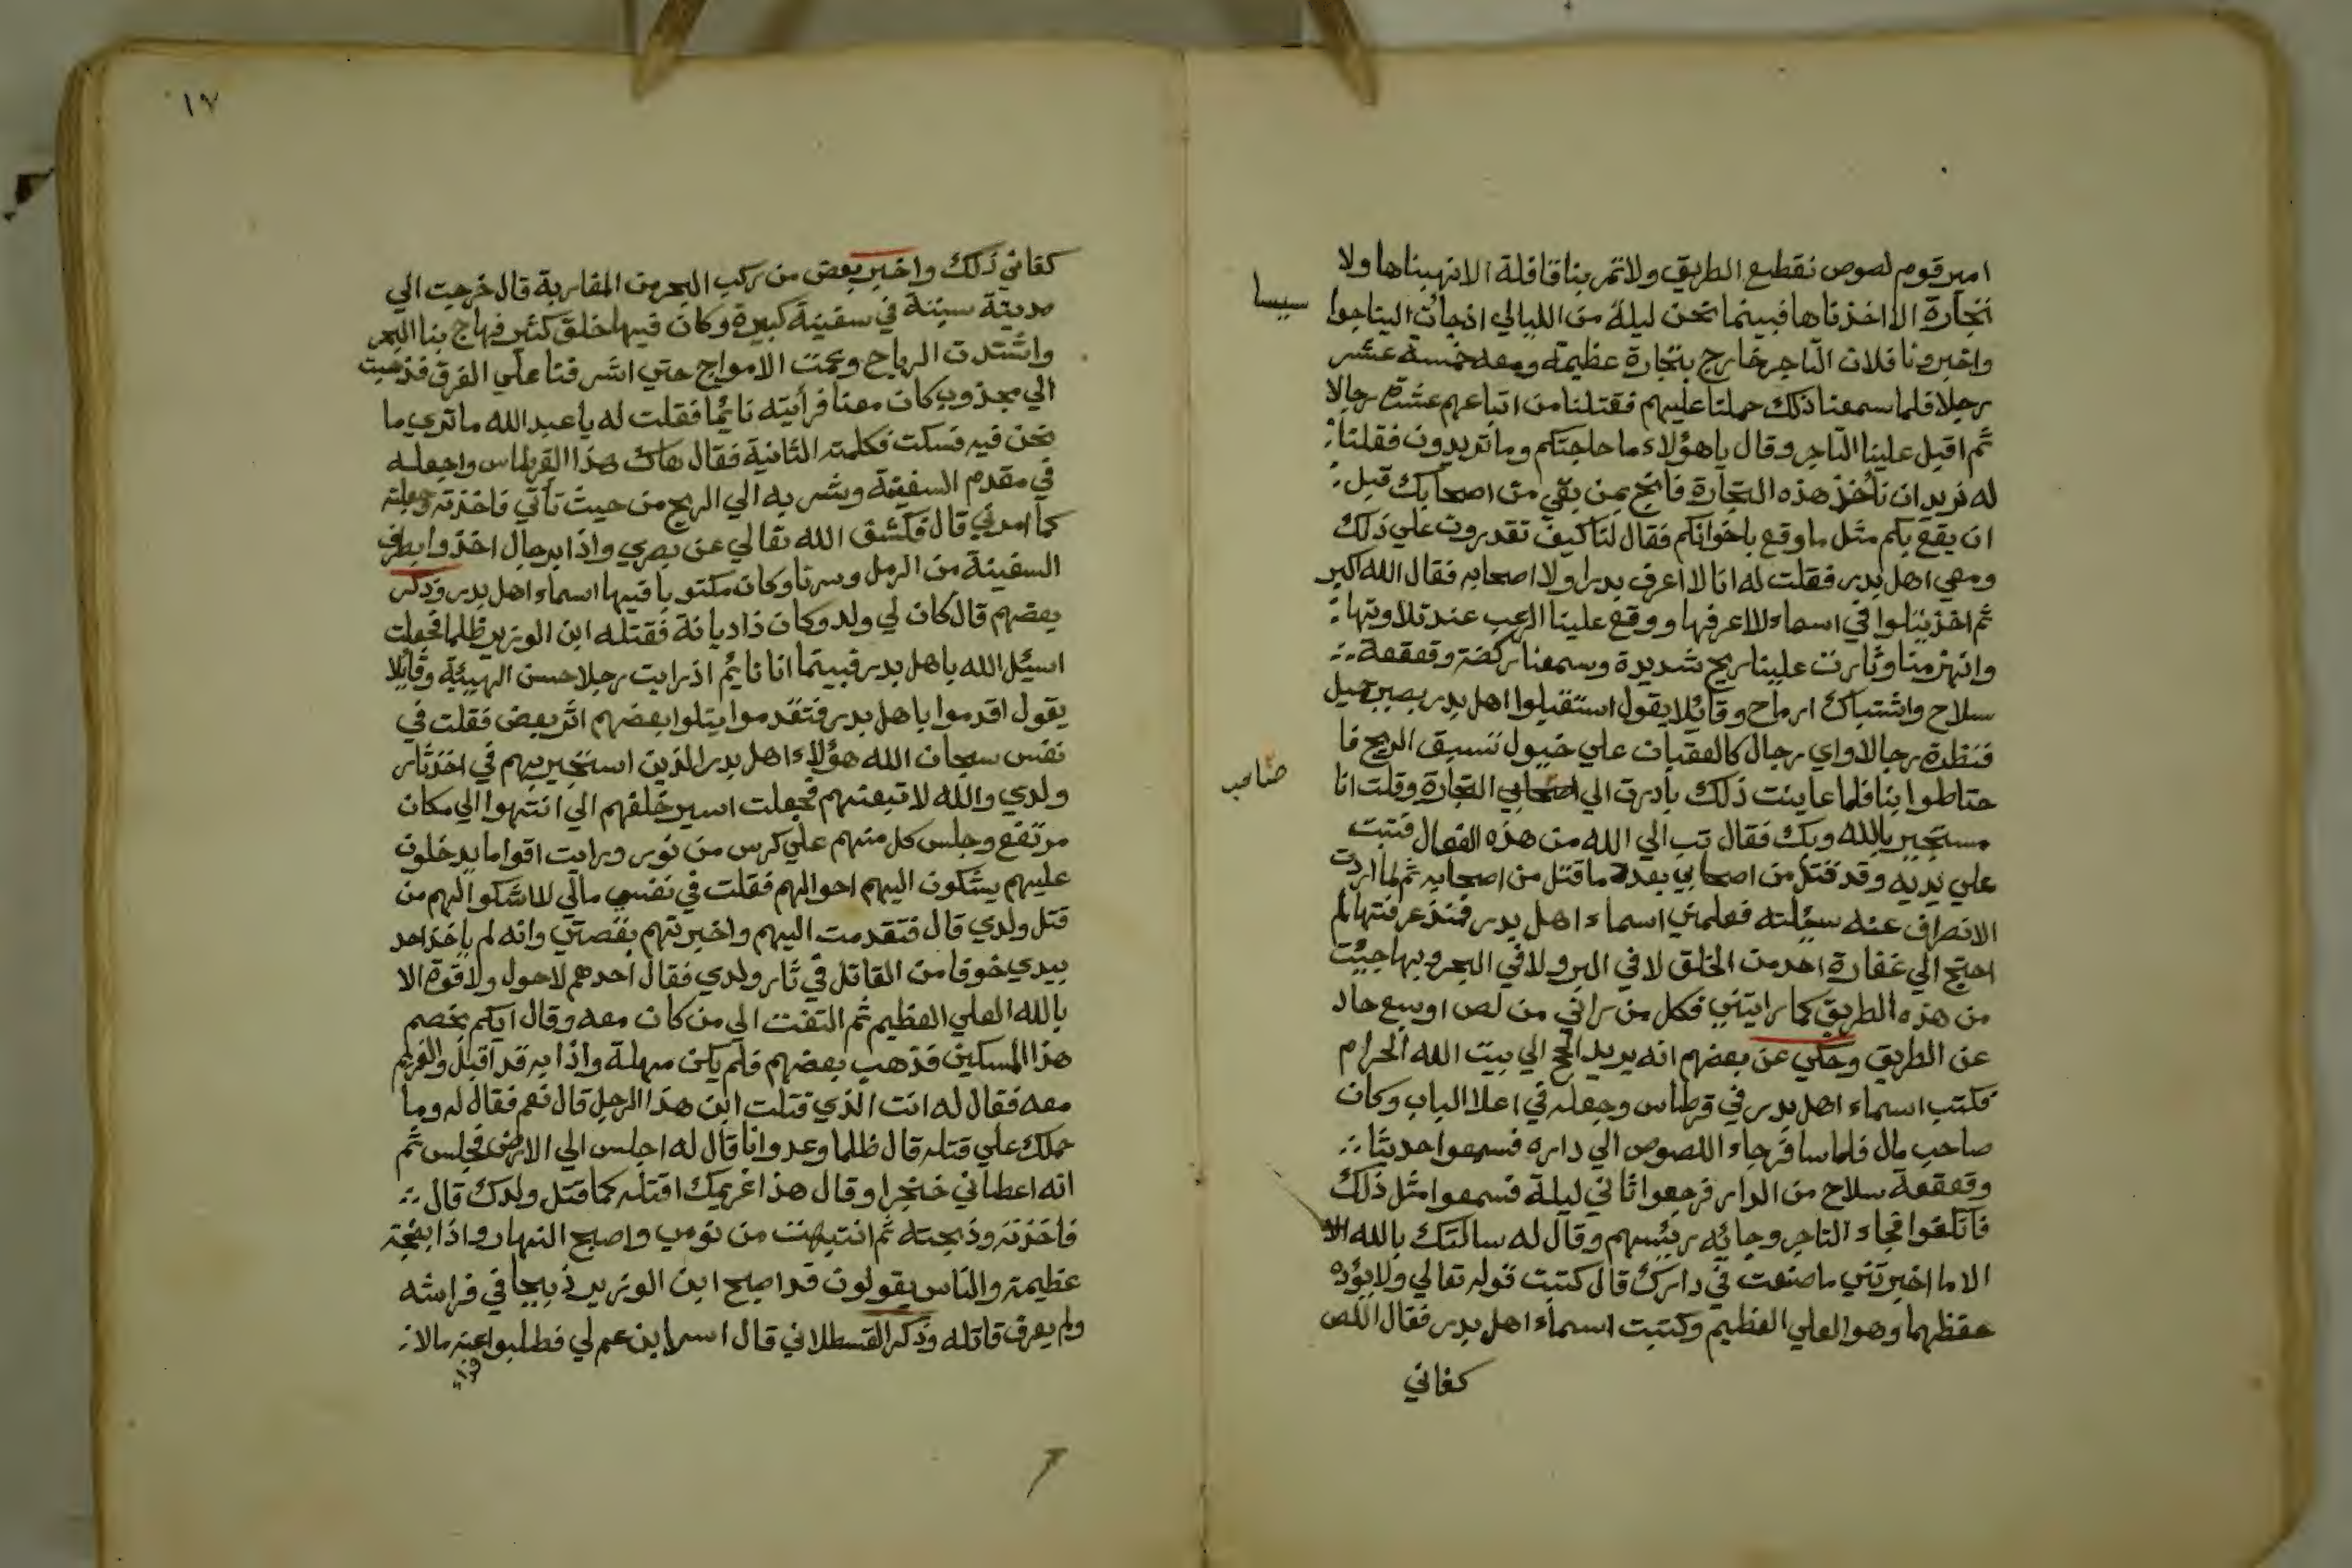 امير قوم لصوص نقطع الطريق ولا تمر بنا قافلة الا نهبناها ولا
تجارة الا اخذناها فبينما نحن ليلة من الليالي اذ جات الينا جوا
سيسا
واخبرونا فلان التاجر خارج بتجارة عظيمة ومعه خمسة عشر
رجلا فلما سمعنا ذلك حملنا عليهم فقتلنا من اتباعهم عشرة رجالا
ثم اقبل علينا التاجر وقال يا هؤلاء ما حاجتكم وما تريدون فقلنا
له نريد ان ناخذ هذه التجارة فانج بمن بقي من اصحابك قبل
ان يقع بكم مثل ما وقع باخوانكم فقال لنا كيف تقدرون علي ذلك
ومعي اهل بدر فقلت له انا لا اعرف بدرا ولا اصحابه فقال الله اكبر
ثم اخذ يتلوا في اسماء لا اعرفها ووقع علينا الرعب عند تلاوتها
وانهزمنا وثارت علينا ريح شديدة وسمعنا ركضة وقعقعة
سلاح واشتباك ارماح وقائلا يقول استقبلوا اهل بدر بصبر جميل
فنظرة رجالا واي رجال كالعقبان علي خيول تسبق الريح فا
حتاطوا بنا فلما عاينت ذلك بادرت الي اصحابي التجارة وقلت انا
صاحب
مستجير بالله وبك فقال تب الي الله من هذه الفعال فتبت
علي يديه وقد قتل من اصحابي بعدة ما قتل من اصحابه ثم لما اردت
الانصراف عنه سئلته فعلمني اسماء اهل بدر فمنذ عرفتها لم
احتج الي غفارة احد من الخلق لا في البر ولا في البحر وبها جيئت
من هذه الطريق كما رايتني فكل من راني من لص او سبع حاد
عن الطريق وحكي عن بعضهم انه يريد الحج الي بيت الله الحرام
فكتب اسماء اهل بدر في قرطاس وجعله في اعلا الباب وكان
صاحب مال فلما سافر جاء اللصوص الي داره فسمعوا حديثا
وقعقعة سلاح من الدار فرجعوا ثاني ليلة فسمعوا مثل ذلك
فانكفوا فجاء التاجر وجائه رئيسهم وقال له سالتك بالله الا
الا ما اخبرتني ما صنعت في دارك قال كتبت قوله تعالي ولا يؤده
حفظهما وهو العلي العظيم وكتبت اسماء اهل بدر فقال اللص
كفاني
١٧
كفاني ذلك واخبر بعض من ركب البحر من المغاربة قال خرجت الي
مدينة سبتة في سفينة كبيرة وكان فيها خلق كثير فهاج بنا البحر
واشتدت الرياح وعمت الامواج حتي اشرفنا علي الغرق فذهبت
الي مجذوب كان معنا فرأيته نائما فقلت له يا عبد الله ما تري ما
نحن فيه فسكت فكلمته الثانية فقال هاك هذا القرطاس واجعله
في مقدم السفينة وشر به الي الريح من حيث تأتي فاخذته وجعلته
كما امرني قال فكشف الله تعالي عن بصري واذا برجال اخذوا بطرف
السفينة من الرمل وسرنا وكان مكتوبا فيها اسماء اهل بدر وذكر
بعضهم قال كان لي ولد وكان ذا ديانة فقتله ابن الوزير ظلما فجعلت
اسئل الله باهل بدر فبينما انا نايم اذ رايت رجلا حسن الهيئة وقائلا
يقول اقدموا يا هل بدر فتقدموا يتلوا بعضهم اثر بعض فقلت في
نفس سبحان الله هؤلاء اهل بدر الذين استنجير بهم في اخذ ثار
ولدي والله لاتبعنهم فجعلت اسير خلفهم الي انتهوا الي مكان
مرتفع وجلس كل منهم علي كرس من نور ورايت اقواما يدخلون
عليهم يشكون اليهم احوالهم فقلت في نفسي مالي لا اشكوا الهم من
قتل ولدي قال فتقدمت اليهم واخبرتهم بقصتي وانه لم ياخذ احد
بيدي خوفا من القاتل في ثار ولدي فقال احدهم لا حول ولا قوة الا
بالله العلي العظيم ثم التفت الي من كان معه وقال ايكم بخصم
هذا المسكين فذهب بعضهم فلم يكن مهلة واذا به قد اقبل والغريم
معه فقال له انت الذي قتلت ابن هذا الرجل قال نعم فقال له وما
حملك علي قتله قال ظلما وعدوانا قال له اجلس الي الارض فجلس ثم
انه اعطاني خنجرا وقال هذا غريمك اقتله كما قتل ولدك قال
فاخذته وذبحته ثم انتبهت من نومي واصبح النهار واذا بضجة
عظيمة والناس يقولون قد اصبح ابن الوزير ذبيحا في فراشه
ولم يعرف قاتله وذكر القسطلاني قال اسر ابن عم لي فطلبوا عنه مالا